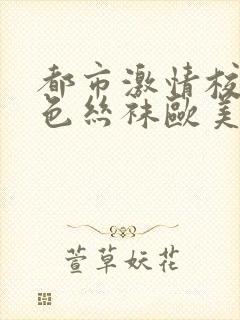 都市激情校
色丝袜欧美
萱草妖花